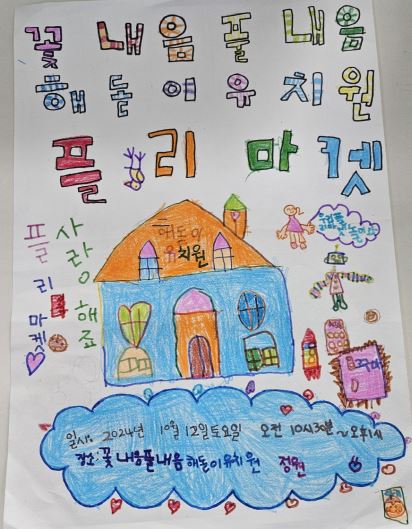 꽃 내음 풀 내음
해돌이유치원
플리마켓
사랑해죠
플리마켓
해돌이
유치원
일시: 2024년 10월 12일토요일 오전 10시30분~오후1시
장소: 꽃내음풀내음 해돌이유치원 정원